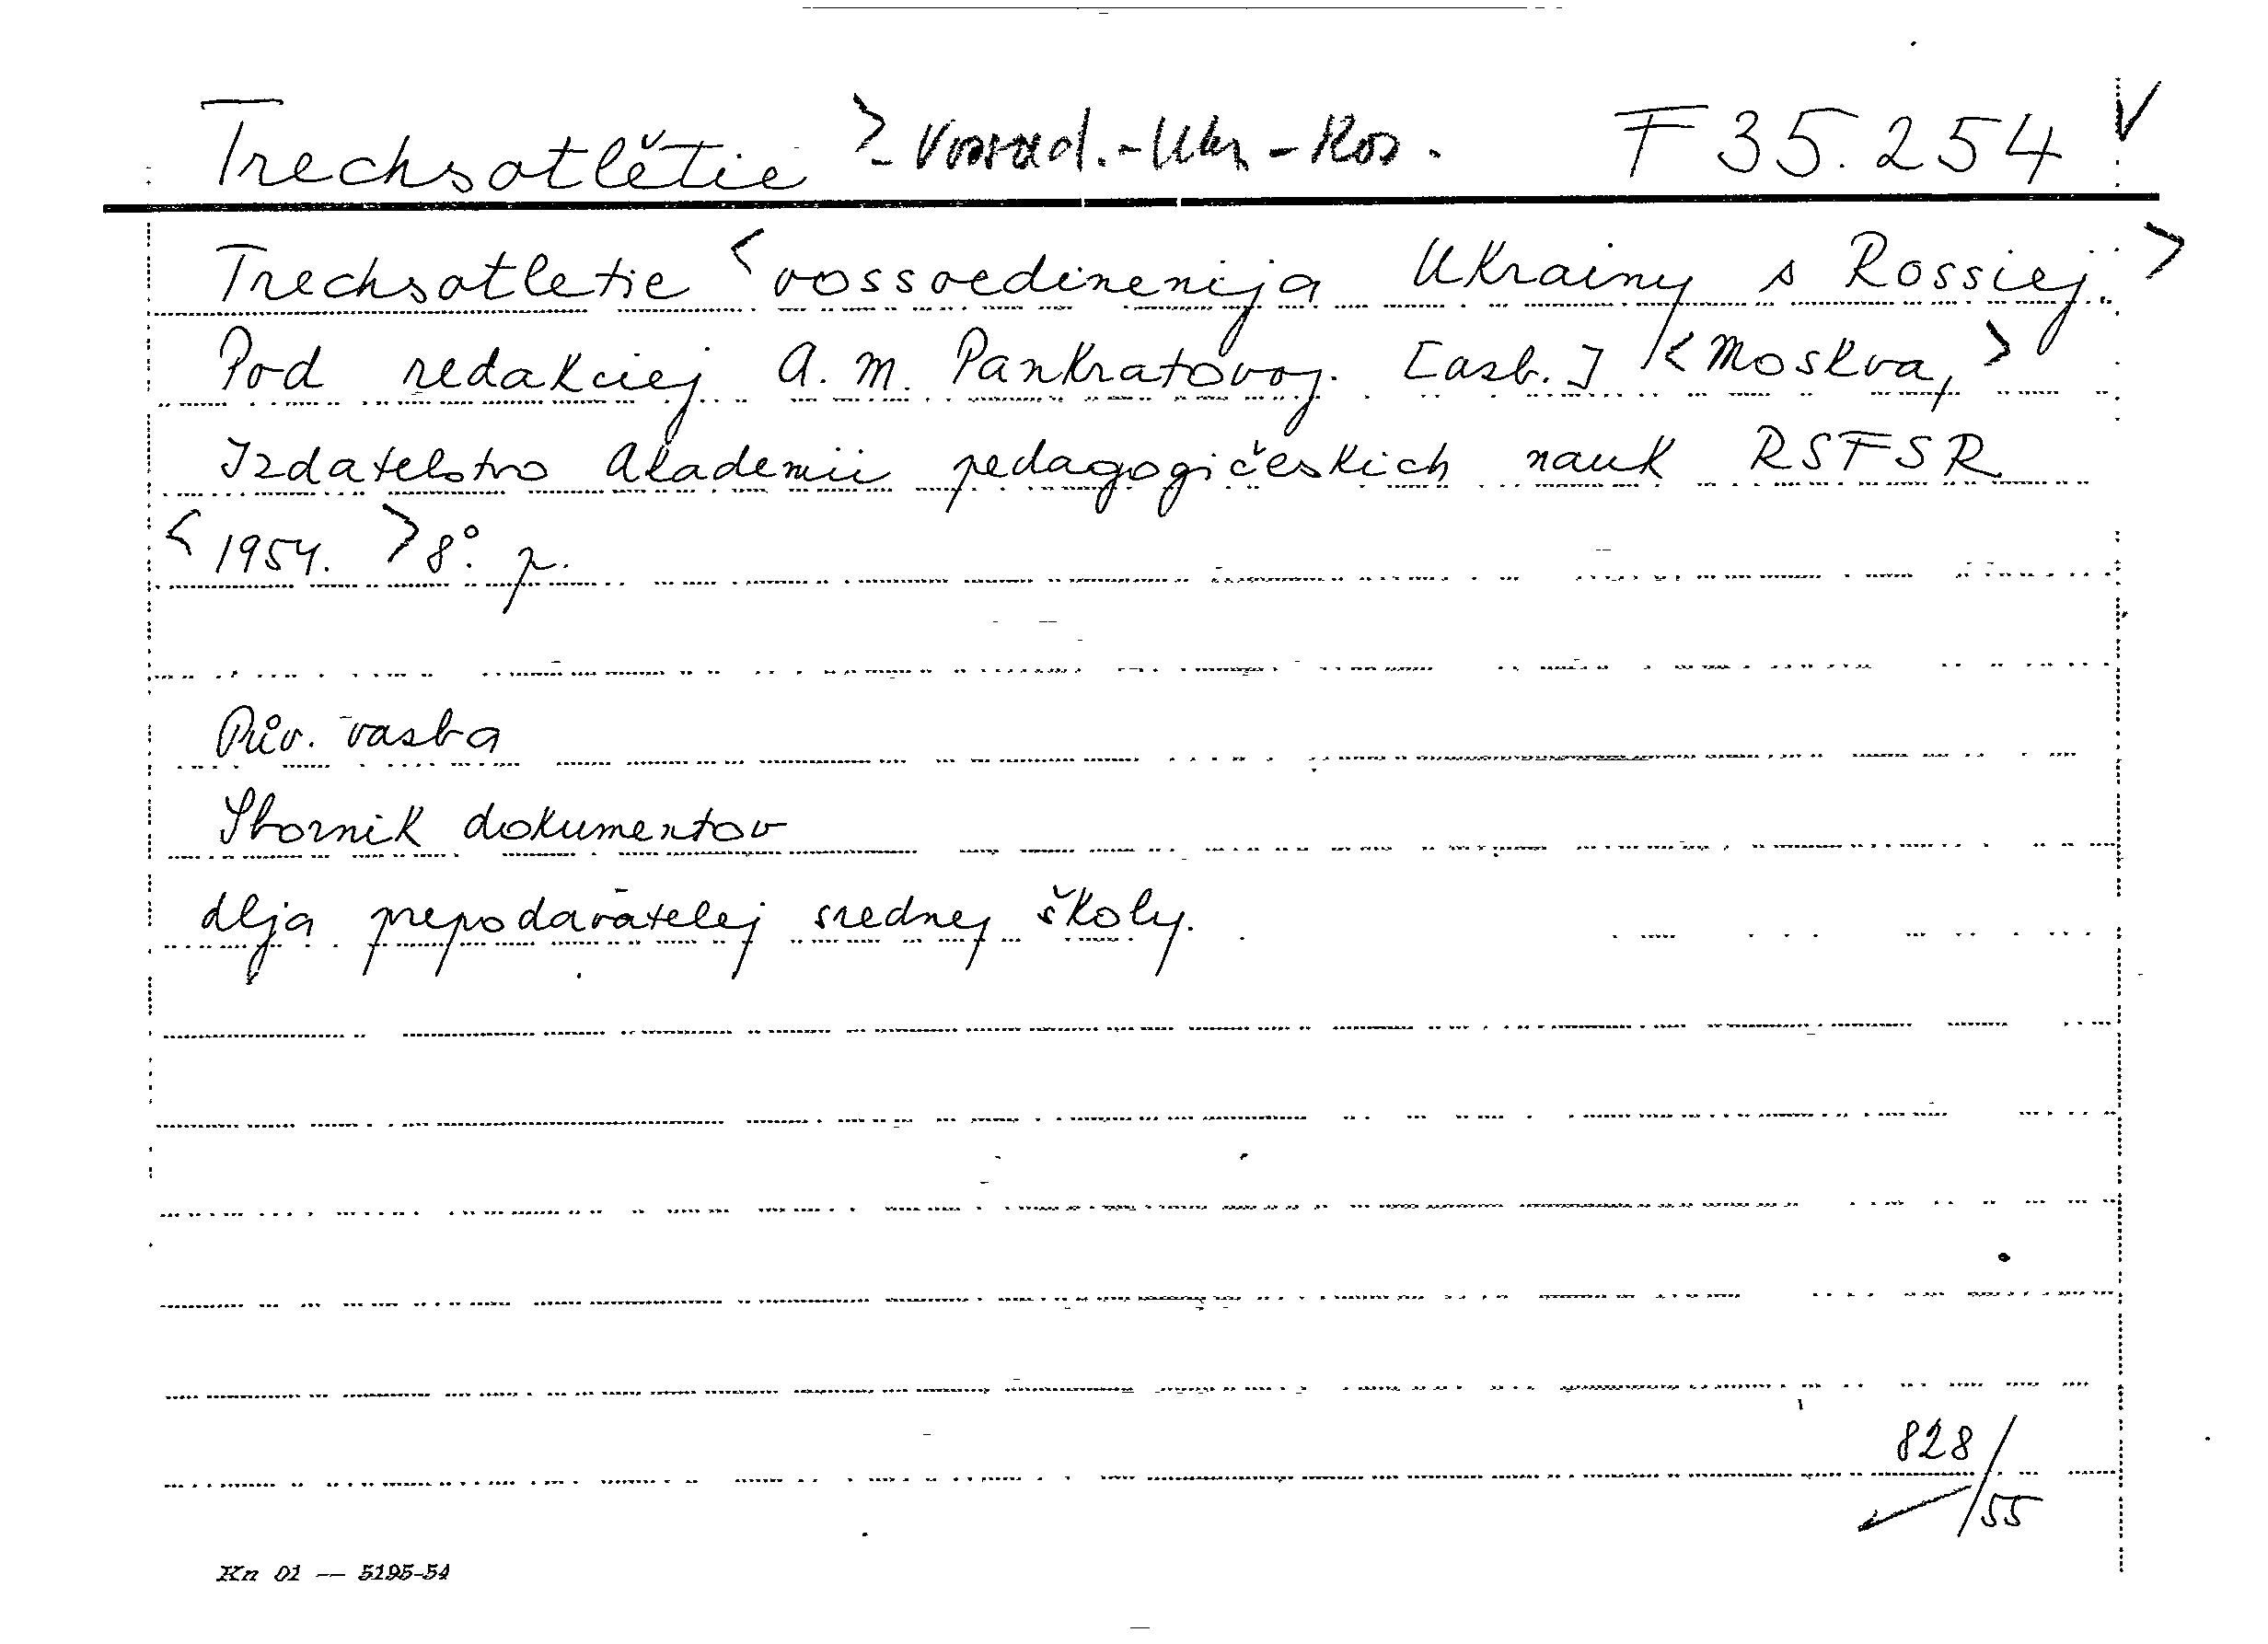 Trechsotlětie > - Vossed. - Ukr - Ros. F 35.254 V
Trechsotletie < vossoedinenija Ukrainy s Rossiej. >
Pod redakciej A. M. Pankratovoj. [asb.] < Moskva, >
Izdatelstvo Akademii pedagogičeskich nauk RSFSR
< 1954. > 8°. p.
Pův. vasba
Sbornik dokumentov
dlja prepodavatelej srednej školy.
828/55
Kn 01 — 5195-54